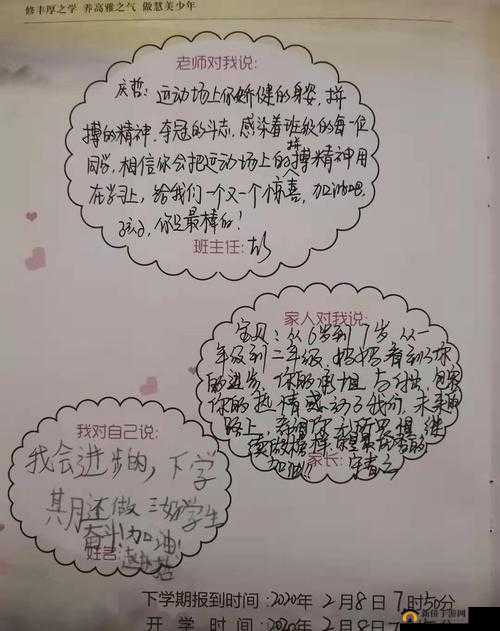 修丰厚之学 养高雅之气 做慧美少年
老师对我说:
庆哲:运动场上你娇健的身姿,拼
搏的精神.夺冠的斗志,感染着班级的每一位
同学,相信你会把运动场上的拼搏精神用
在学习上,给我们一个又一个惊喜,加油吧
孩子,你是最棒的!
班主任:
家人对我说:
宝贝:从6岁到7岁 从一
年级到二年级 妈妈看到了你
的进步,你的承担 与付出,
你的热情感动了我们.未来的
路上,
家长:
我对自己说:
我会进步的,下学
期还做三好学生
奋斗!加油!
姓名:
下学期报到时间:2020年2月8日7时50分
开学时间:2020年2月8日7时50分
新佳手游网